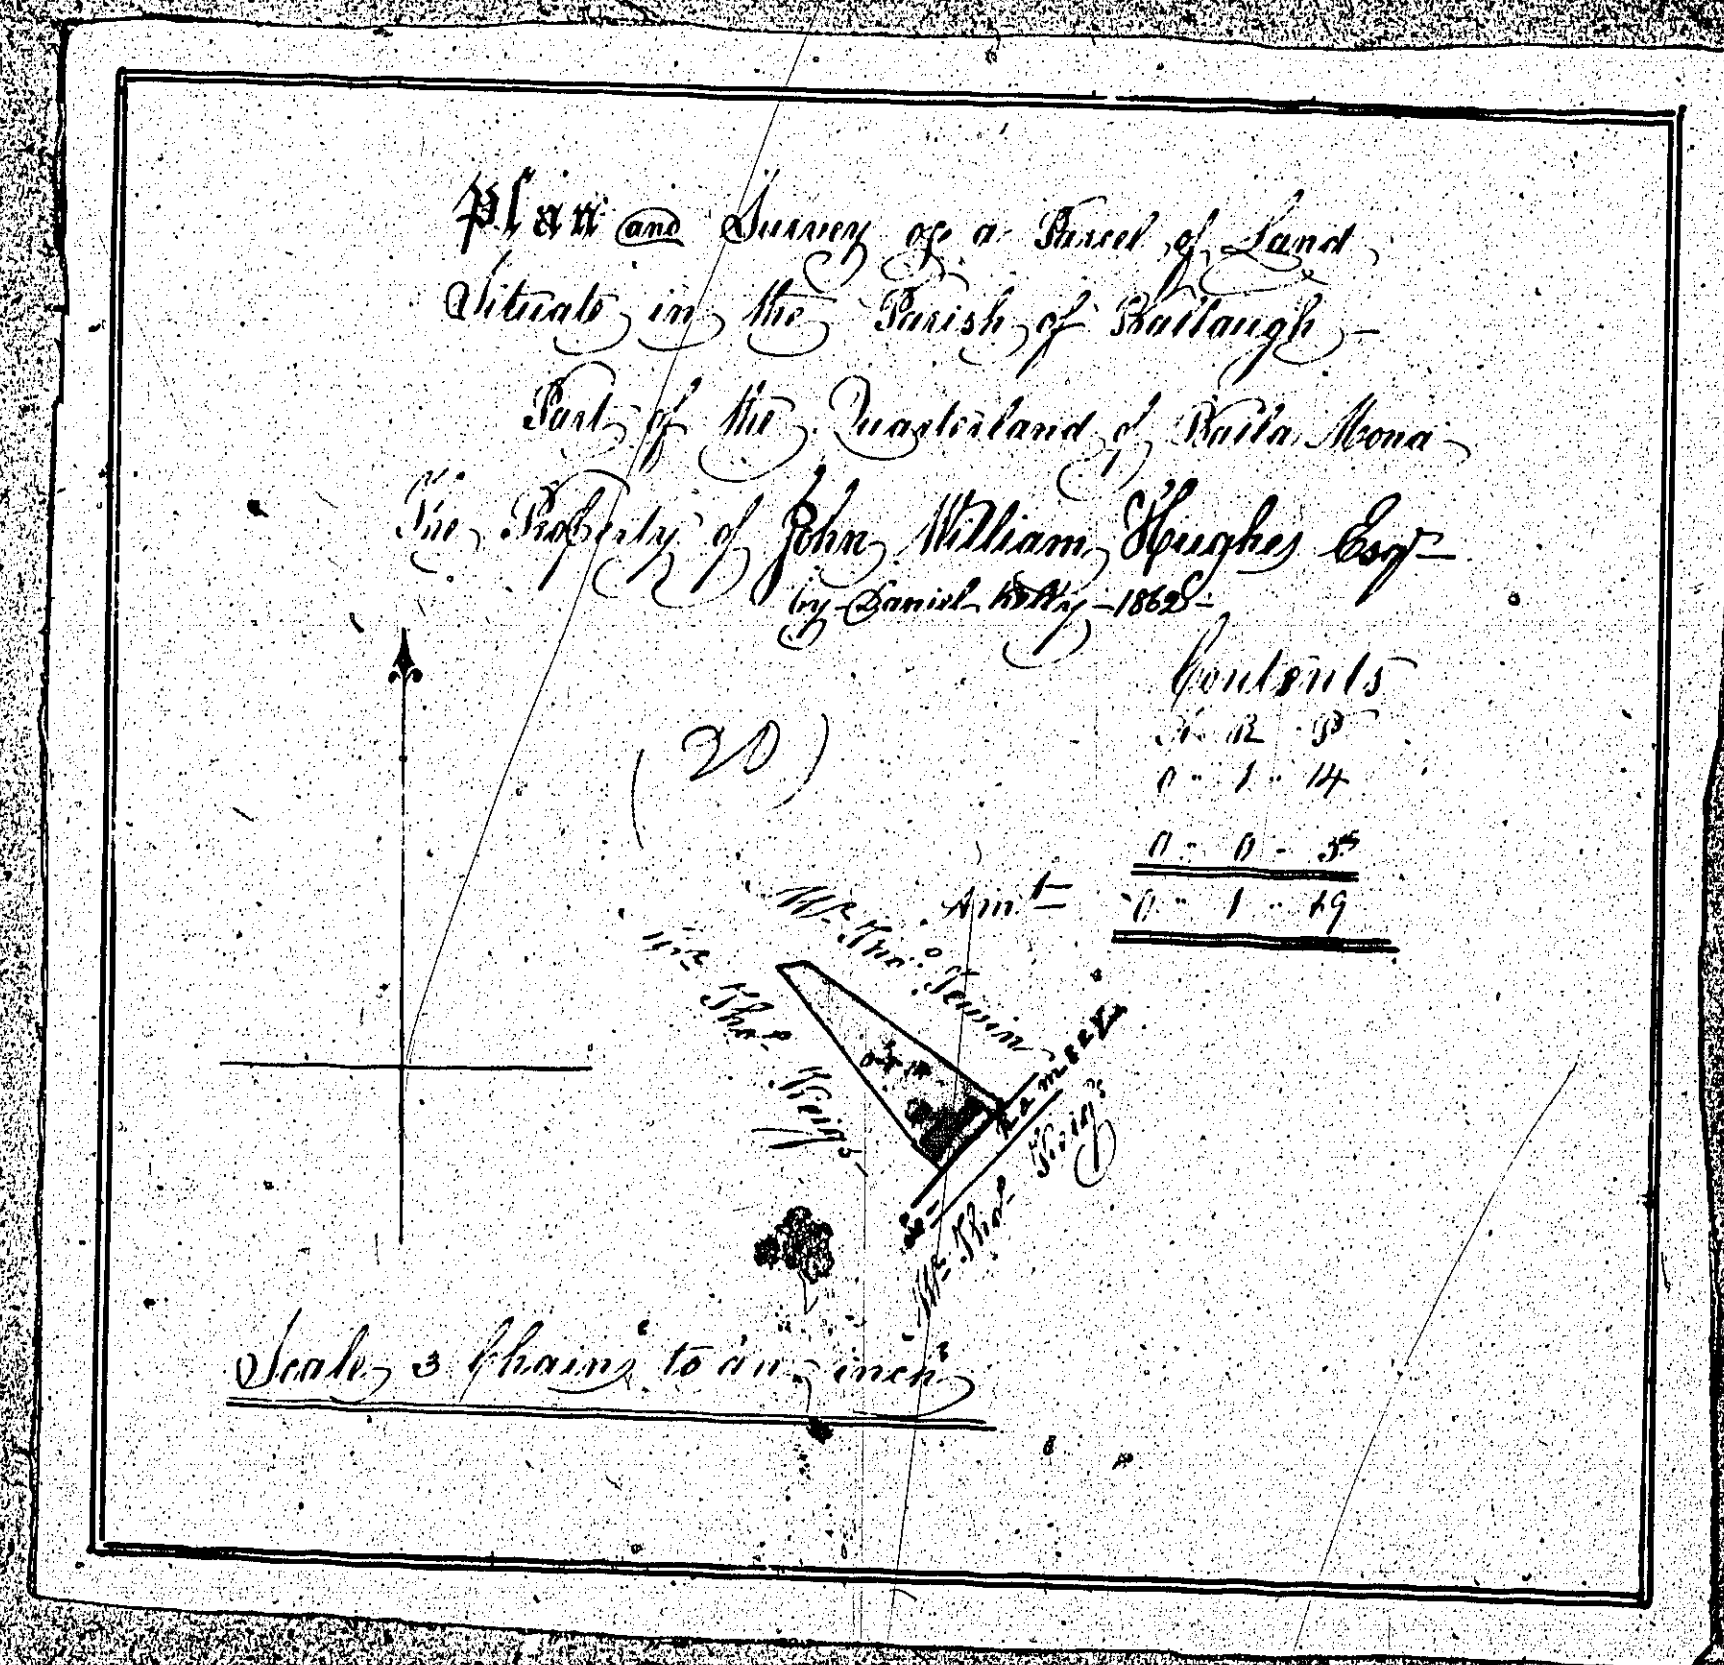 Plan and Survey of a Parcel of Land
Situate in the Parish of Ballaugh
Part of the Quarterland of Balla Mona
The Property of John William Hughes Esqr
by Daniel Kelly - 1862 -
Contents
A R P
0 .. 1 .. 14
(20)
0 - 0 - 5
Amt 0 .. 1 .. 19
Mr Thos
Mr Thos Keig
Ramsey
Mr Thos Keig
Scale 3 Chains to an inch